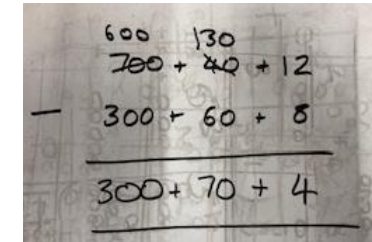 600 130
700 + 40 + 12
— 300 + 60 + 8
300 + 70 + 4